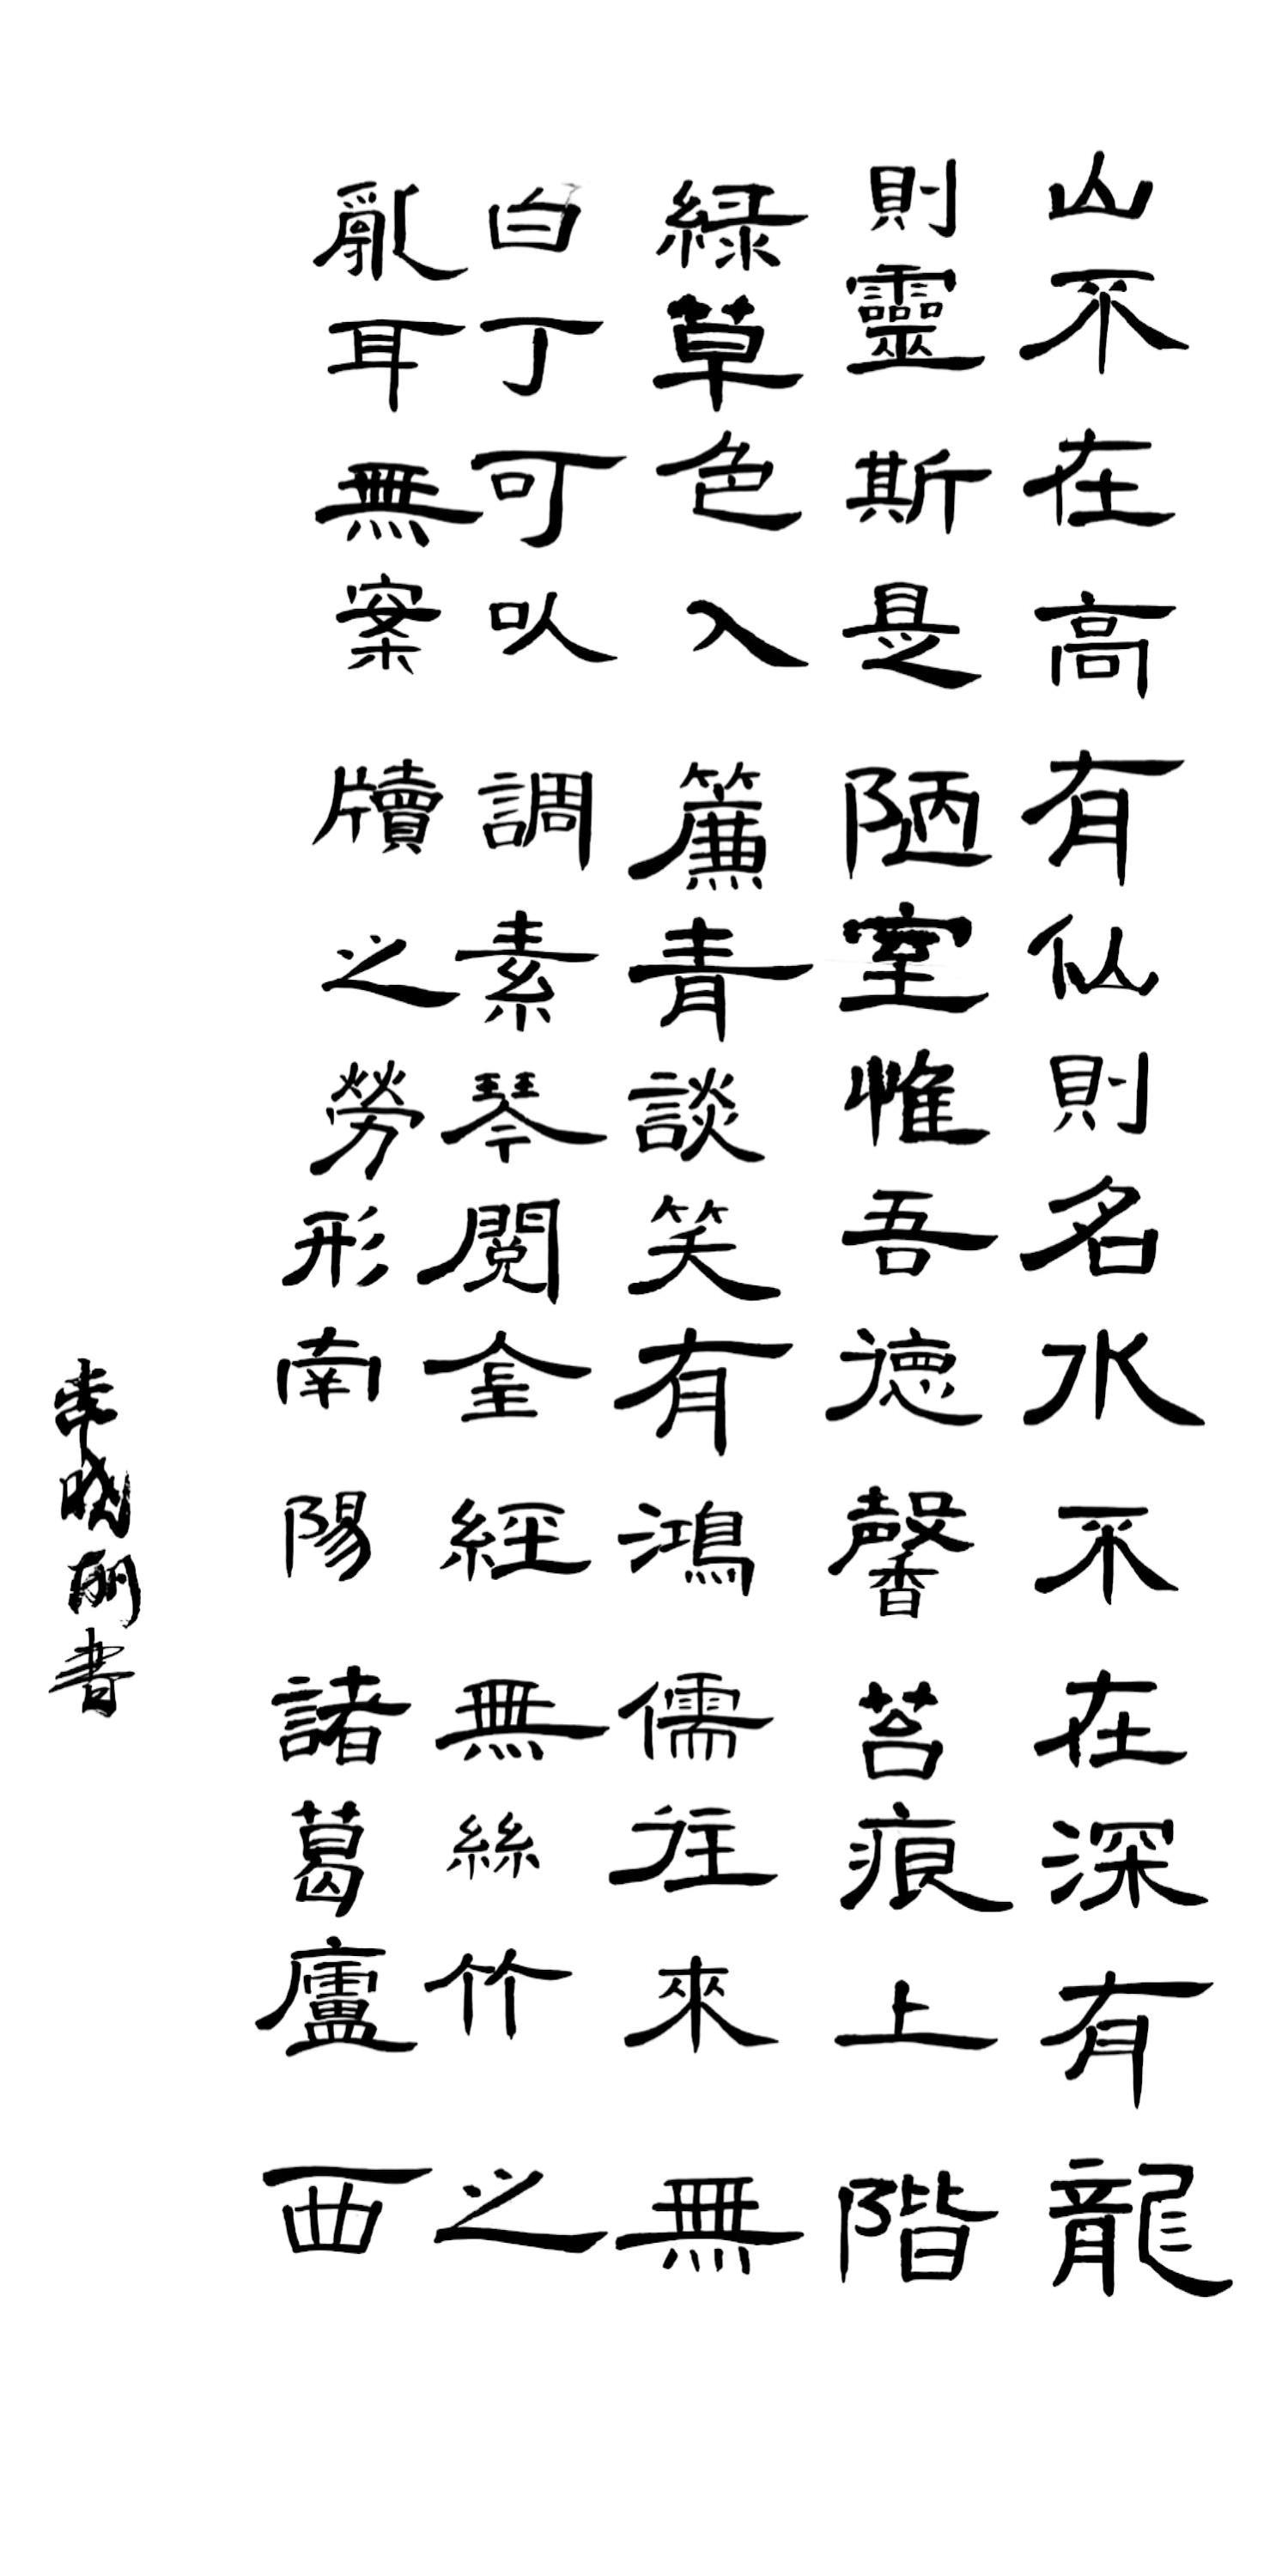 山不在高有仙則名水不在深有龍
則靈斯是陋室惟吾德馨苔痕上階
綠草色入簾青談笑有鴻儒往來無
白丁可以調素琴閱金經無絲竹之
亂耳無案牘之勞形南陽諸葛廬西
書